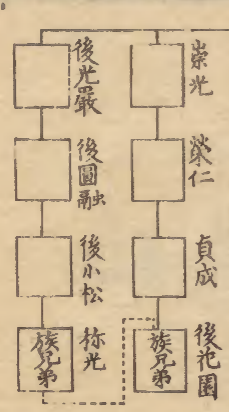 崇光
榮仁
貞成
後花園
族兄弟
後光嚴
後圓融
後小松
称光
族兄弟